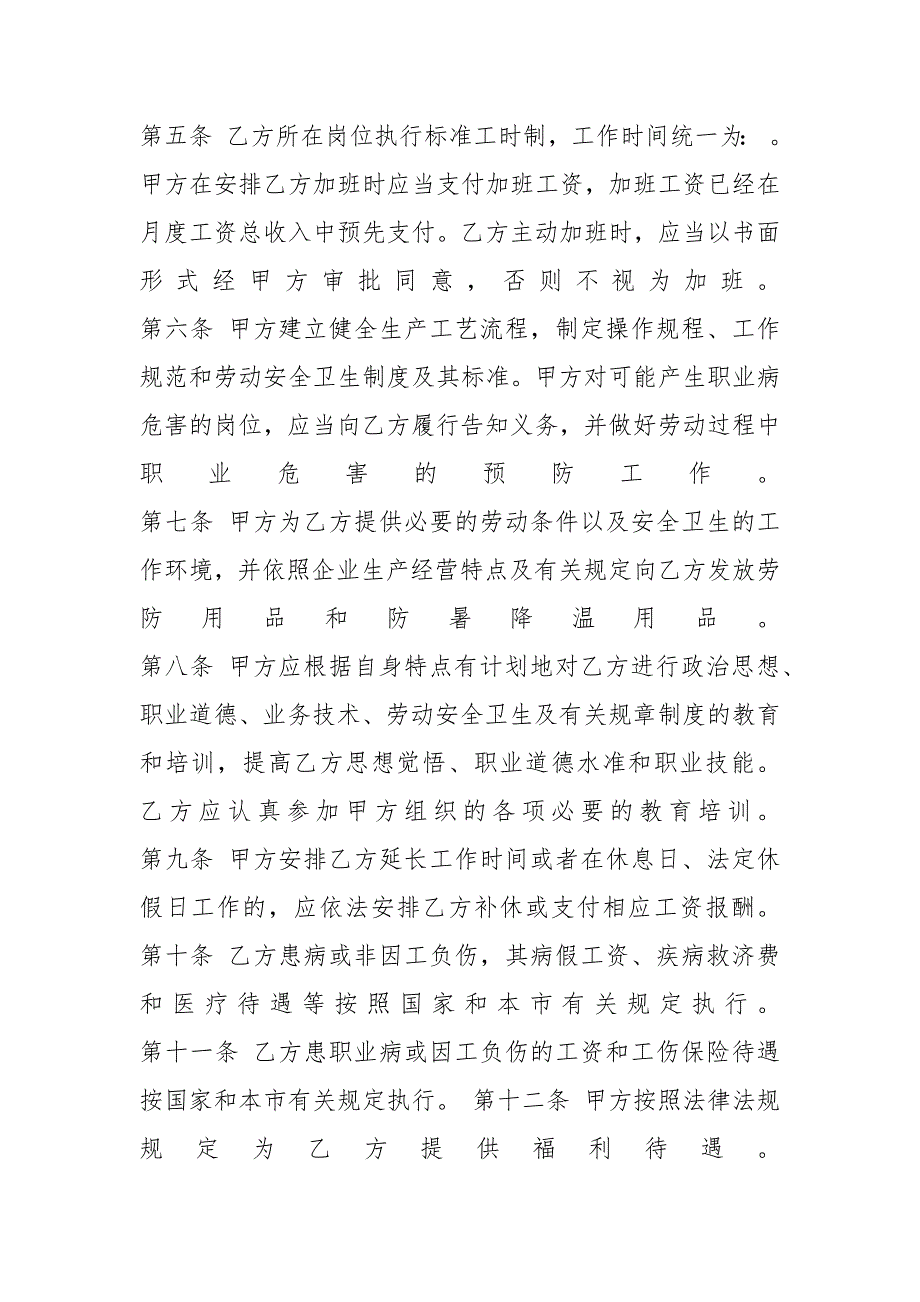 第五条 乙方所在岗位执行标准工时制，工作时间统一为： 。
甲方在安排乙方加班时应当支付加班工资，加班工资已经在
月度工资总收入中预先支付。乙方主动加班时，应当以书面
形式经甲方审批同意，否则不视为加班。
第六条 甲方建立健全生产工艺流程，制定操作规程、工作
规范和劳动安全卫生制度及其标准。甲方对可能产生职业病
危害的岗位，应当向乙方履行告知义务，并做好劳动过程中
职业危害的预防工作。
第七条 甲方为乙方提供必要的劳动条件以及安全卫生的工
作环境，并依照企业生产经营特点及有关规定向乙方发放劳
防用品和防暑降温用品。
第八条 甲方应根据自身特点有计划地对乙方进行政治思想、
职业道德、业务技术、劳动安全卫生及有关规章制度的教育
和培训，提高乙方思想觉悟、职业道德水准和职业技能。
乙方应认真参加甲方组织的各项必要的教育培训。
第九条 甲方安排乙方延长工作时间或者在休息日、法定休
假日工作的，应依法安排乙方补休或支付相应工资报酬。
第十条 乙方患病或非因工负伤，其病假工资、疾病救济费
和医疗待遇等按照国家和本市有关规定执行。
第十一条 乙方患职业病或因工负伤的工资和工伤保险待遇
按国家和本市有关规定执行。 第十二条 甲方按照法律法规
规定为乙方提供福利待遇。